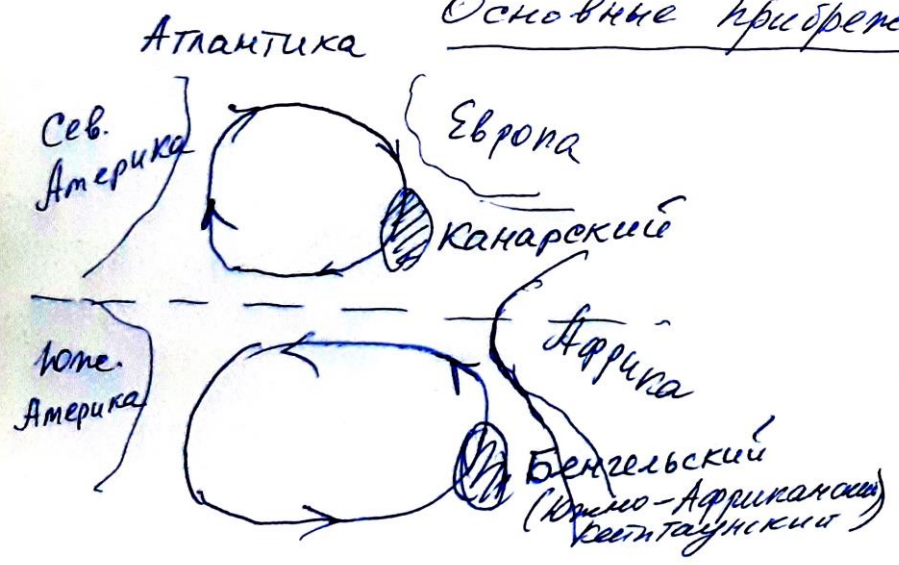 Основные прибреж
Атлантика
Сев.
Америка
Европа
Канарский
Юж.
Америка
Африка
Бенгельский
(Южно-Африканский)
Кейптаунский